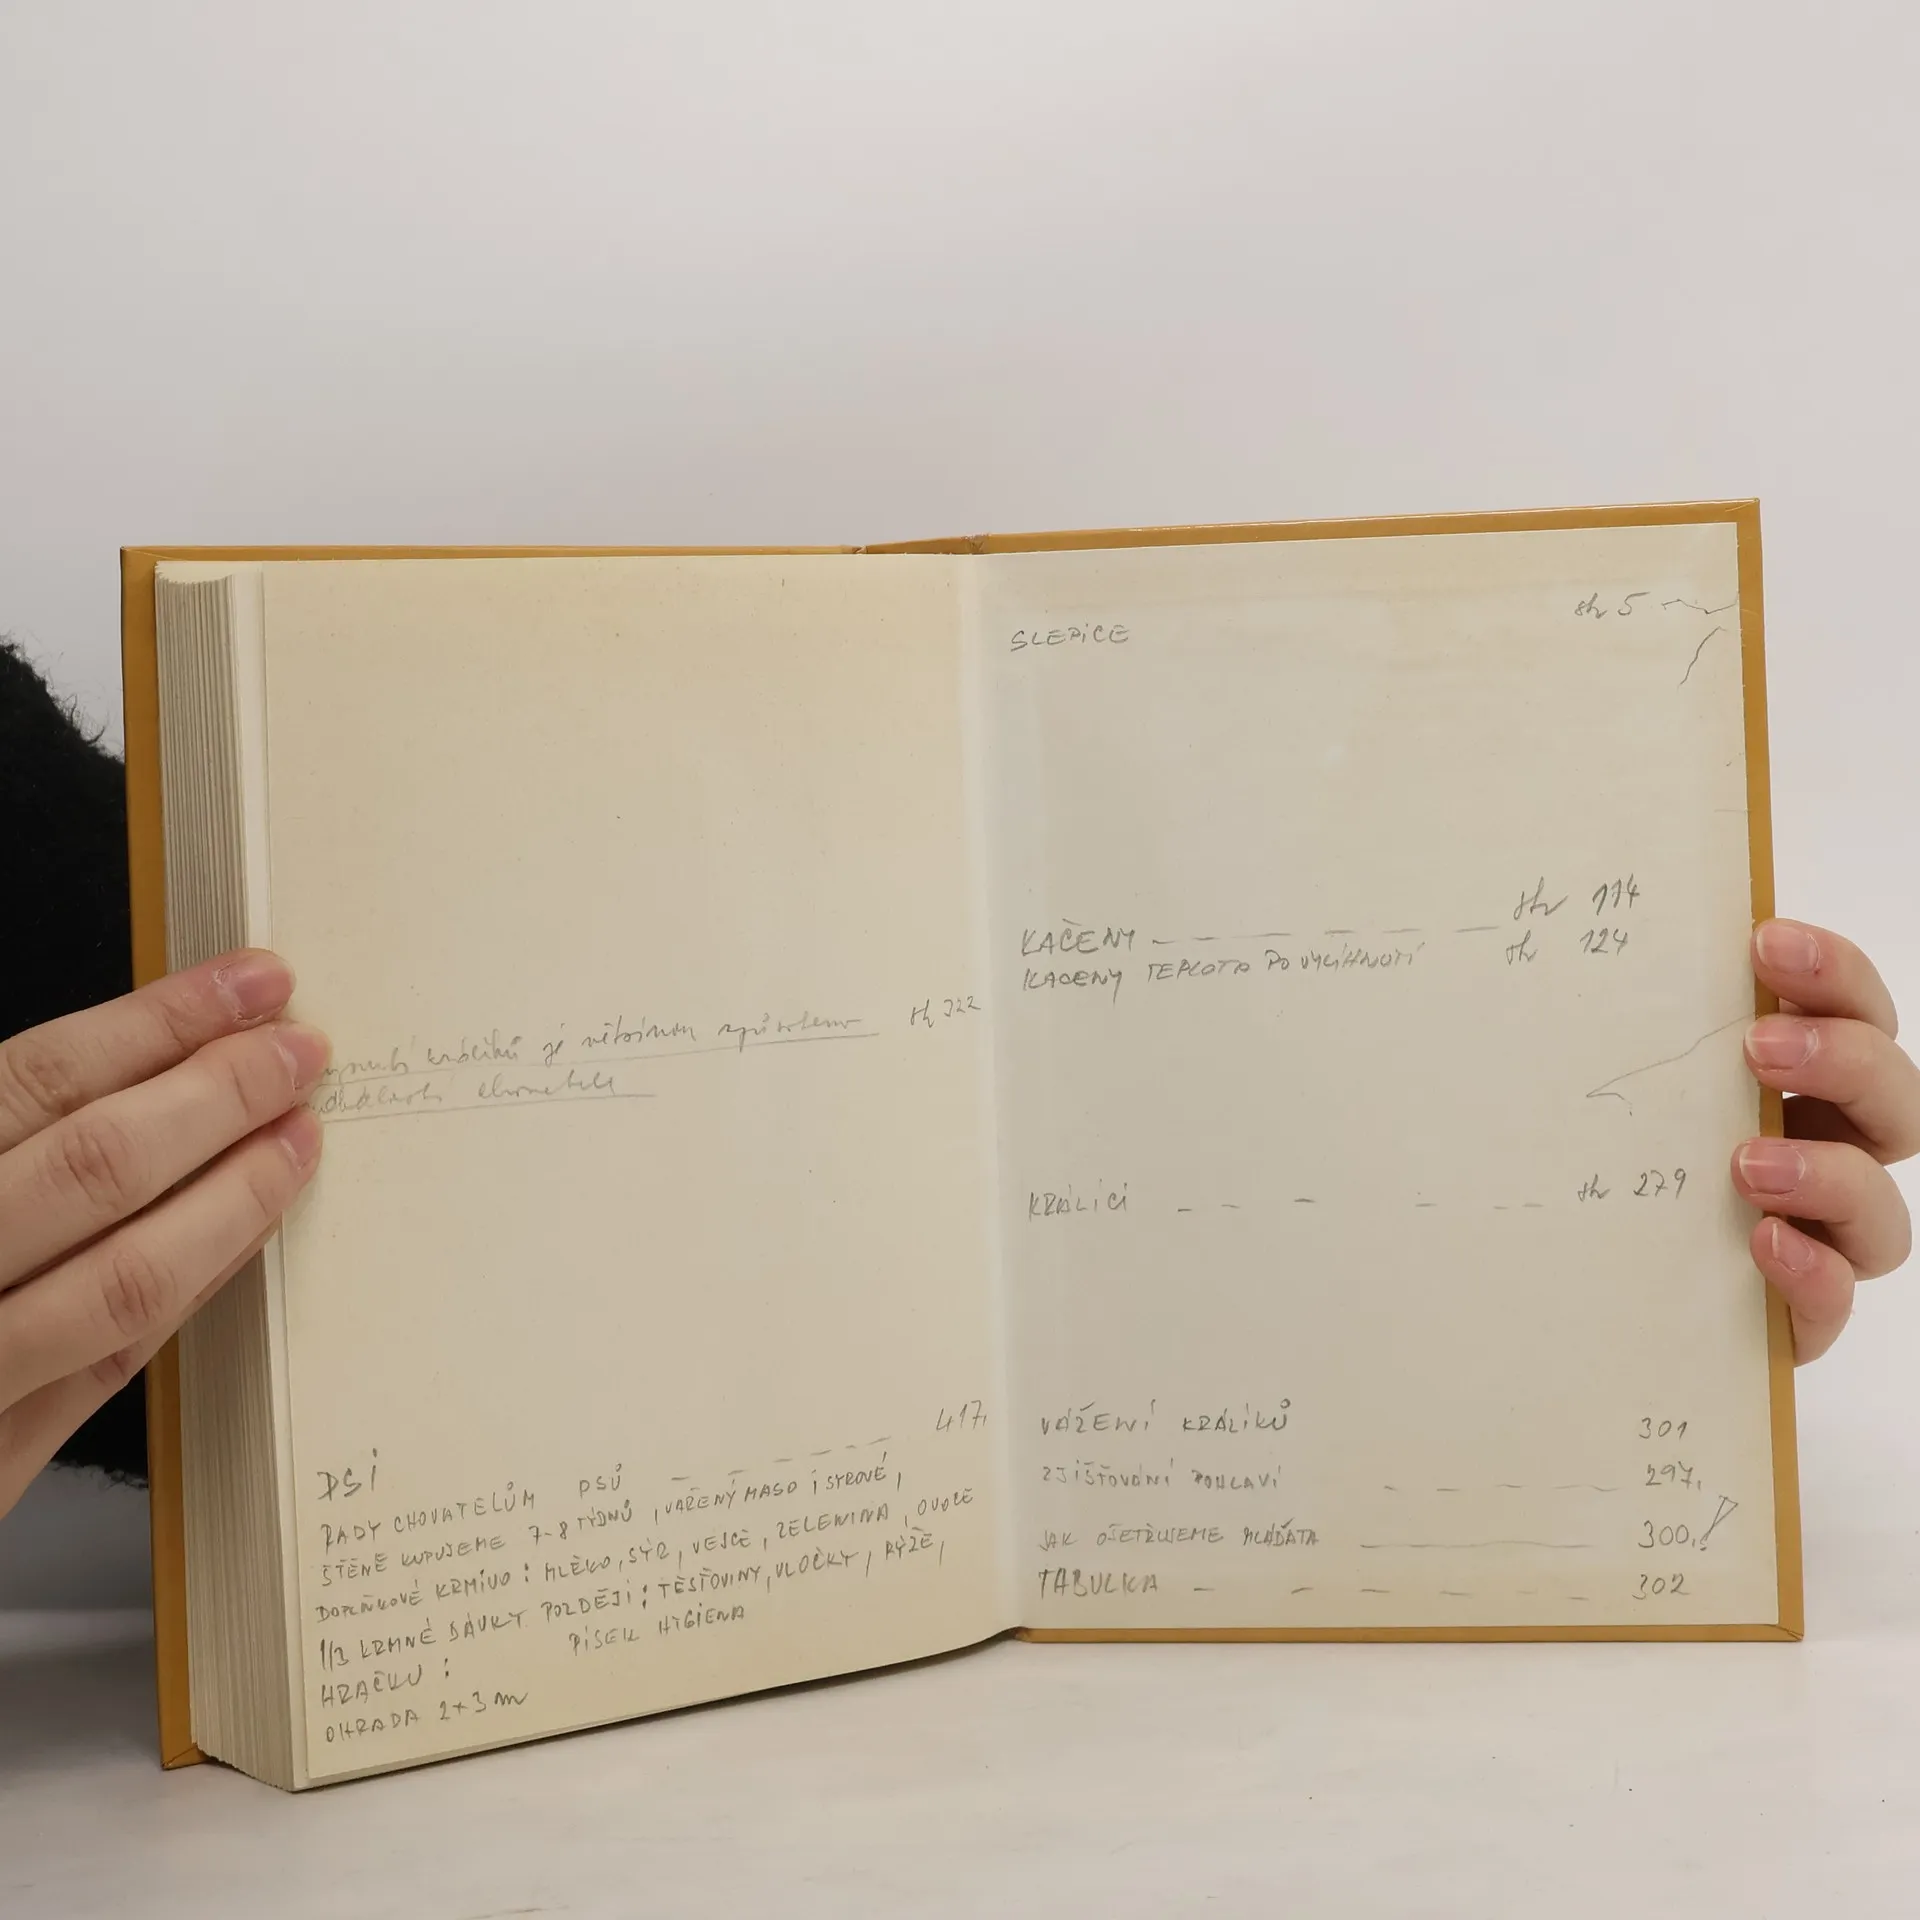 králíků je většinou způsobeno str 322
chovatele
PSI
RADY CHOVATELŮM PSŮ _ _ _ _ _ 417.
ŠTĚNĚ KUPUJEME 7-8 TÝDNŮ, VAŘENÝ MASO I SYROVÉ,
DOPLŇKOVÉ KRMIVO: MLÉKO, SÝR, VEJCE, ZELENINA, OVOCE
1/3 KRMNÉ DÁVKY POZDĚJI: TĚSTOVINY, VLOČKY, RÝŽE,
HRAČKU: PÍSEK HYGIENA
OHRADA 2x3 m
SLEPICE str 5
KAČENY _ _ _ _ _ _ str 114
KACENY TEPLOTA PO VYLÍHNUTÍ str 124
KRÁLÍCI _ _ _ _ _ _ str 279
VÁŽENÍ KRÁLIKŮ 301
ZJIŠŤOVÁNÍ POHLAVÍ _ _ _ _ _ 297.
JAK OŠETŘUJEME MLÁĎATA ____ 300.!
TABULKA _ _ _ _ _ _ 302